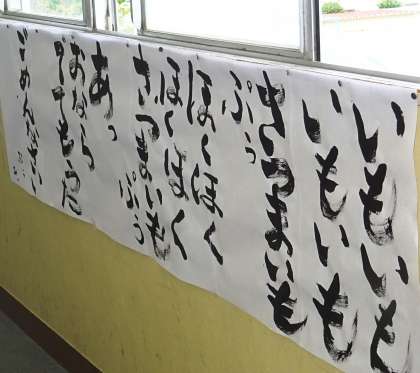 いもいも
いもいも
さつまいも
ぷぅ
ほくほく
ほくほく
さつまいも
ぷぅ
あっ
おなら
でてもうた
ごめんなさい